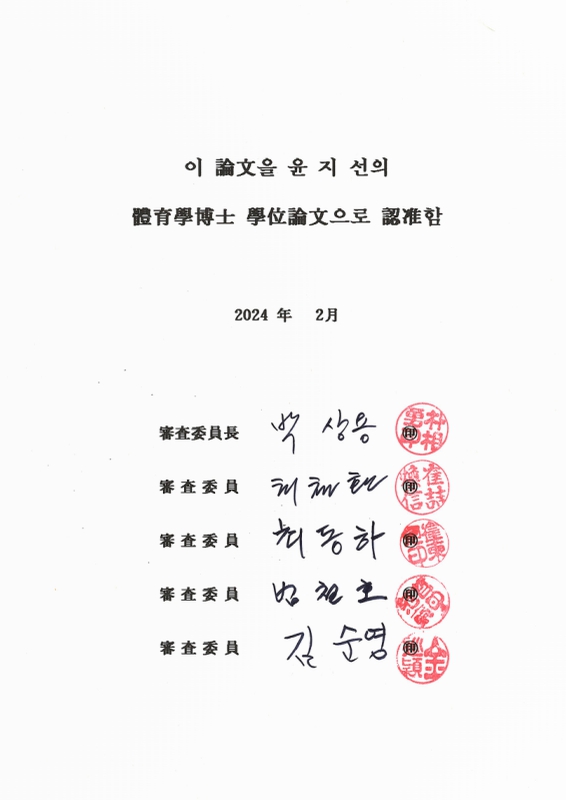 이 論文을 윤 지 선의
體育學博士 學位論文으로 認准함
2024 年 2月
審査委員長 박 상용 ㊞
審 査 委 員 ㊞
審 査 委 員 최 동 하 ㊞
審 査 委 員 ㊞
審 査 委 員 김 순영 ㊞